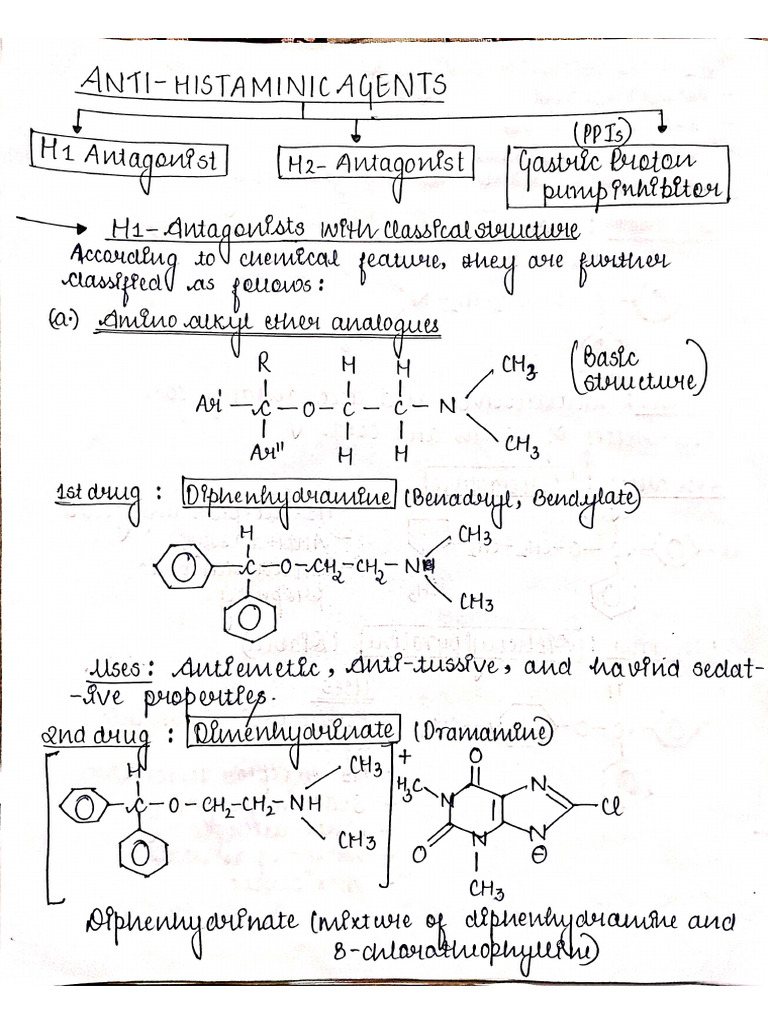 ANTI-HISTAMINIC AGENTS
(PPIs)
H1 Antagonist H2- Antagonist Gastric Proton
pump inhibitor
H1- Antagonists with classical structure
According to chemical feature, they are further
classified as follows:
(a.) Amino alkyl ether analogues
R H H CH3 (Basic
structure)
Ar' - C - O - C - C - N
Ar" H H CH3
1st drug : Diphenhydramine (Benadryl, Bendylate)
H CH3
C - O - CH2 - CH2 - N
CH3
Uses: Antiemetic, Anti-tussive, and havind sedat-
-ive properties.
2nd drug : Dimenhydrinate (Dramamine)
H CH3 + O
H3C N N
C - O - CH2 - CH2 - NH Cl
CH3 O N N
⊖
CH3
Diphenhydrinate (mixture of diphenhydramine and
8-chlorotheophylline)